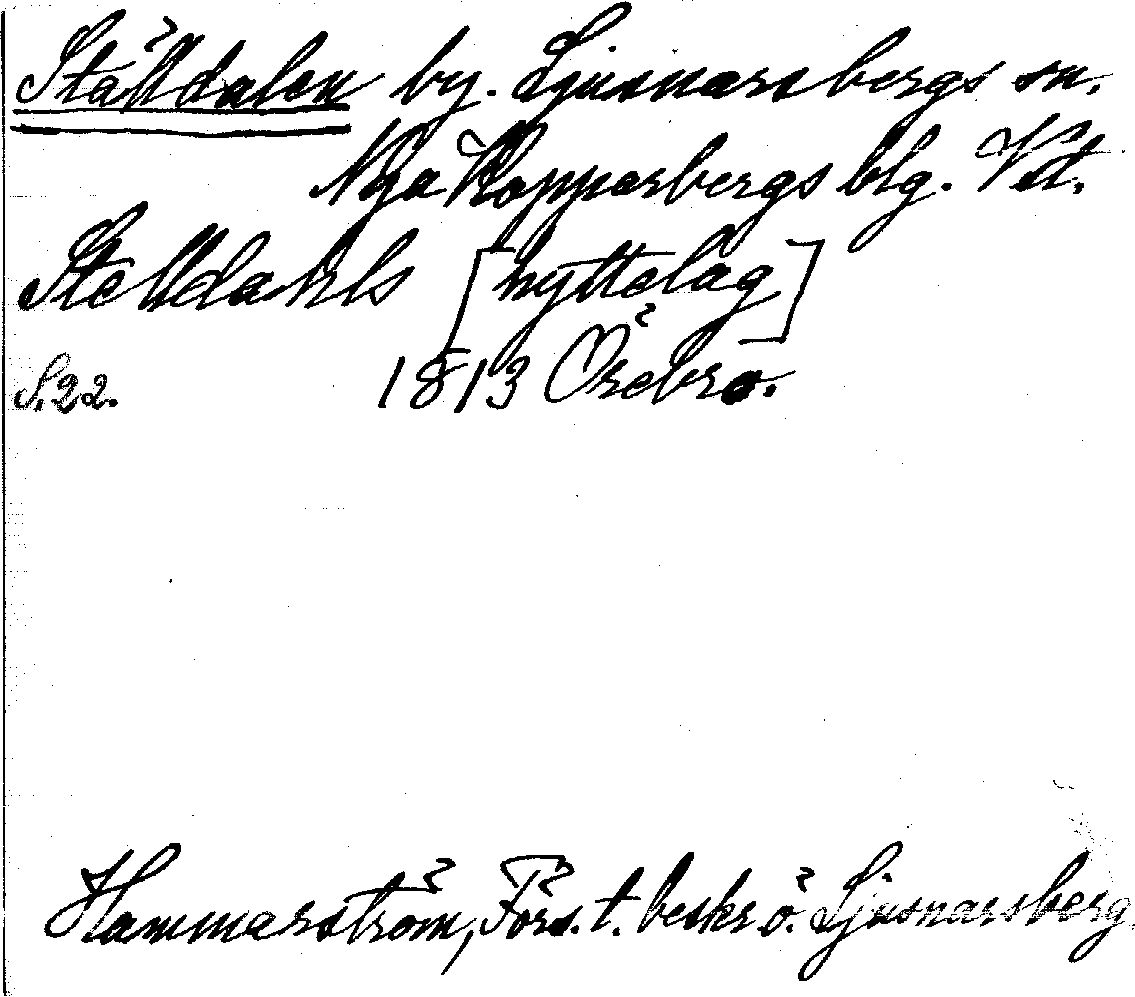 Ställdalen by. Ljusnarsbergs sn.
Nya Kopparbergs blg. Vst.
Stelldahls [hyttelag]
S. 22. 1813 Örebro.
Hammarström, Förs. t. beskr. ö. Ljusnarsberg